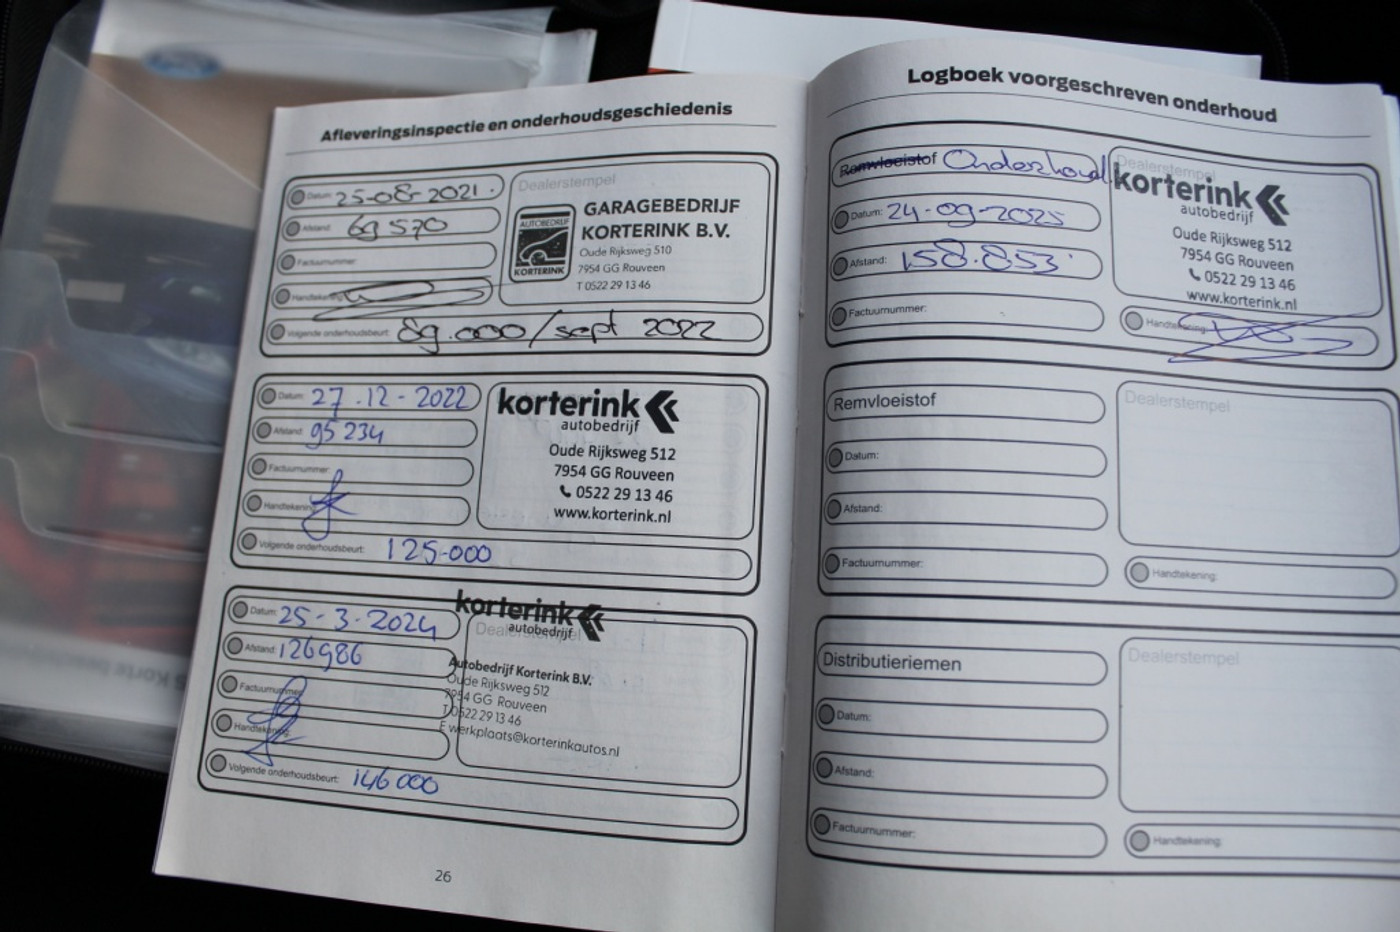 Afleveringsinspectie en onderhoudsgeschiedenis
Datum: 25-08-2021.
Afstand: 69570
Factuurnummer:
Handtekening:
Volgende onderhoudsbeurt: 89.000/sept 2022
Dealerstempel
AUTOBEDRIJF
KORTERINK
GARAGEBEDRIJF
KORTERINK B.V.
Oude Rijksweg 510
7954 GG Rouveen
T 0522 29 13 46
Datum: 27.12-2022
Afstand: 95234
Factuurnummer:
Handtekening:
Volgende onderhoudsbeurt: 125-000
korterink
autobedrijf
Oude Rijksweg 512
7954 GG Rouveen
0522 29 13 46
www.korterink.nl
Datum: 25-3-2024
Afstand: 126986
Factuurnummer:
Handtekening:
Volgende onderhoudsbeurt: 146000
korterink
autobedrijf
Dealerstempel
Autobedrijf Korterink B.V.
Oude Rijksweg 512
7954 GG Rouveen
T 0522 29 13 46
E werkplaats@korterinkautos.nl
26
Logboek voorgeschreven onderhoud
Remvloeistof Onderhoud
Datum: 24-09-2025
Afstand: 158.853
Factuurnummer:
Dealerstempel
korterink
autobedrijf
Oude Rijksweg 512
7954 GG Rouveen
0522 29 13 46
www.korterink.nl
Handtekening:
Remvloeistof
Datum:
Afstand:
Factuurnummer:
Dealerstempel
Handtekening:
Distributieriemen
Datum:
Afstand:
Factuurnummer:
Dealerstempel
Handtekening: